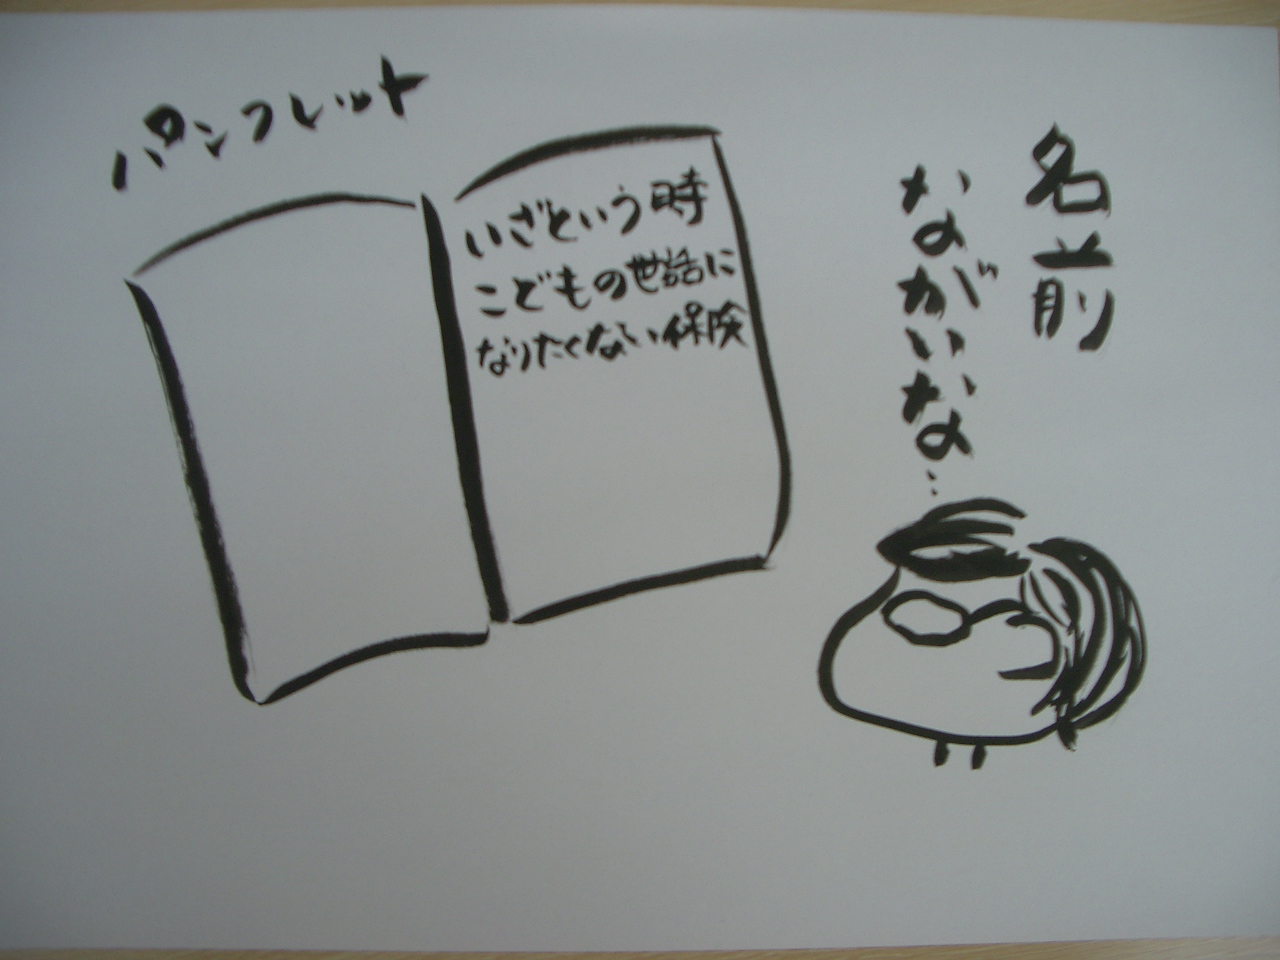 パンフレット
いざという時
こどもの世話に
なりたくない保険
名前
ながいな…